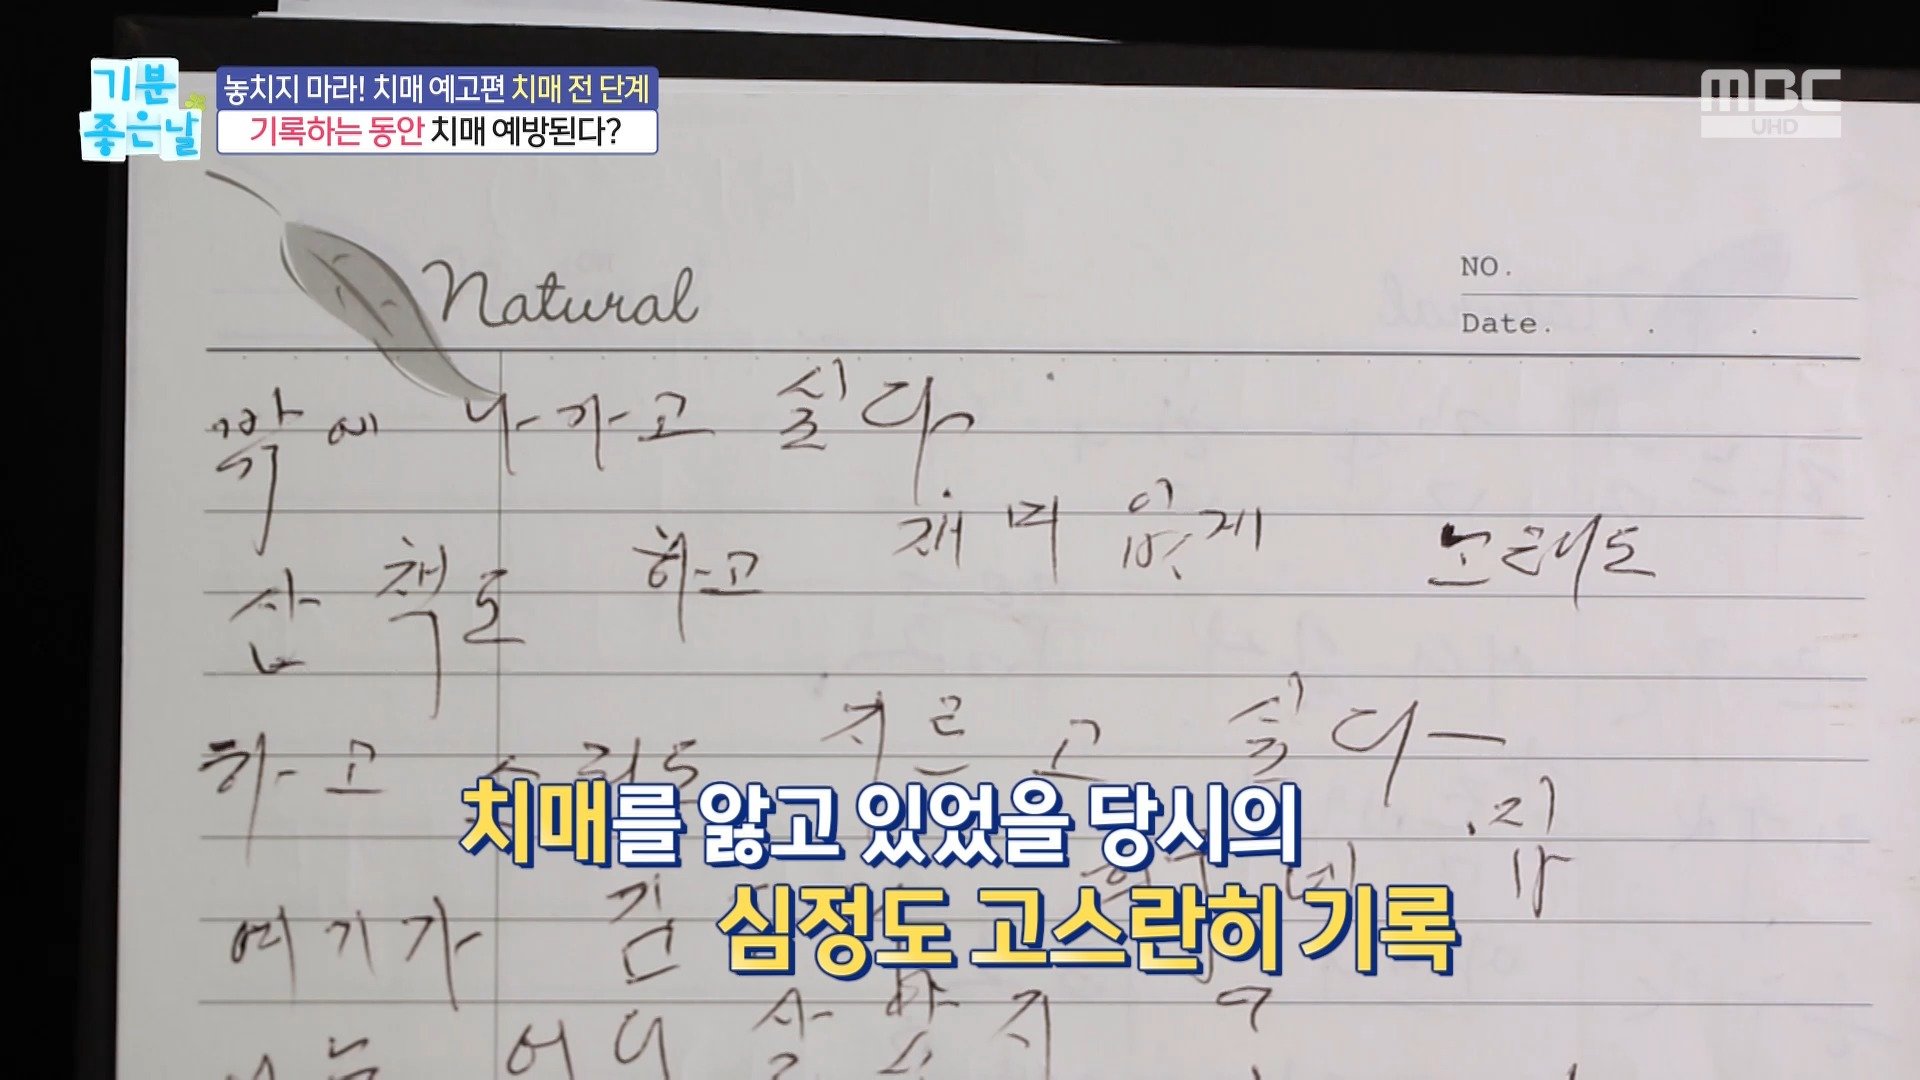 기분
좋은날
놓치지 마라! 치매 예고편 치매 전 단계
기록하는 동안 치매 예방된다?
MBC
UHD
Natural
NO.
Date. . .
에 나가고 싶다
산책도 하고 재미 없게 노래도
하고 소리도 지르고 싶다
치매를 앓고 있었을 당시의
여기가
심정도 고스란히 기록
어디